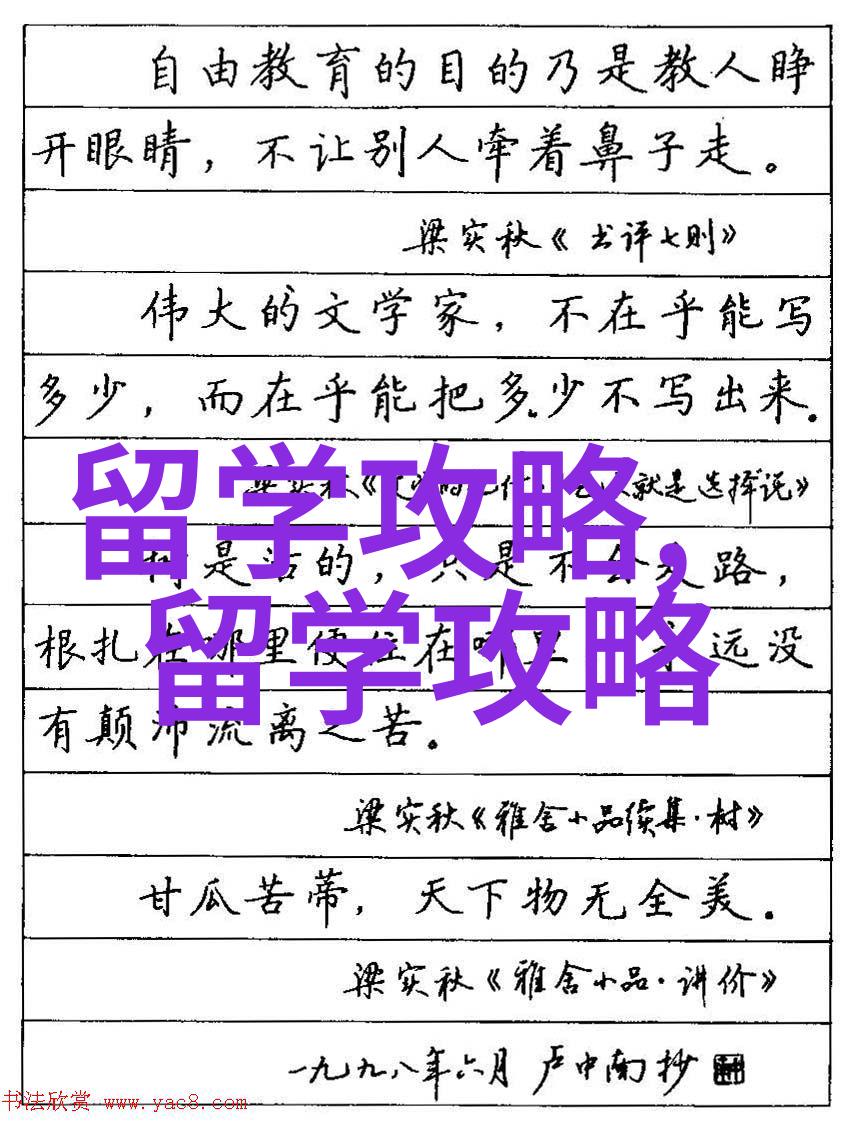 自由教育的目的乃是教人睁
开眼睛，不让别人牵着鼻子走。
梁实秋《书评七则》
伟大的文学家，不在乎能写
多少，而在乎能把多少不写出来。
留学攻略，
梁实秋《就是选择说》
是活的，只是不会走路，
留学攻略
根扎在哪里便住在哪里，永远没
有颠沛流离之苦。
梁实秋《雅舍小品续集·树》
甘瓜苦蒂，天下物无全美。
梁实秋《雅舍小品·讲价》
一九九八年六月 卢中南抄
书法欣赏 www.yac8.com